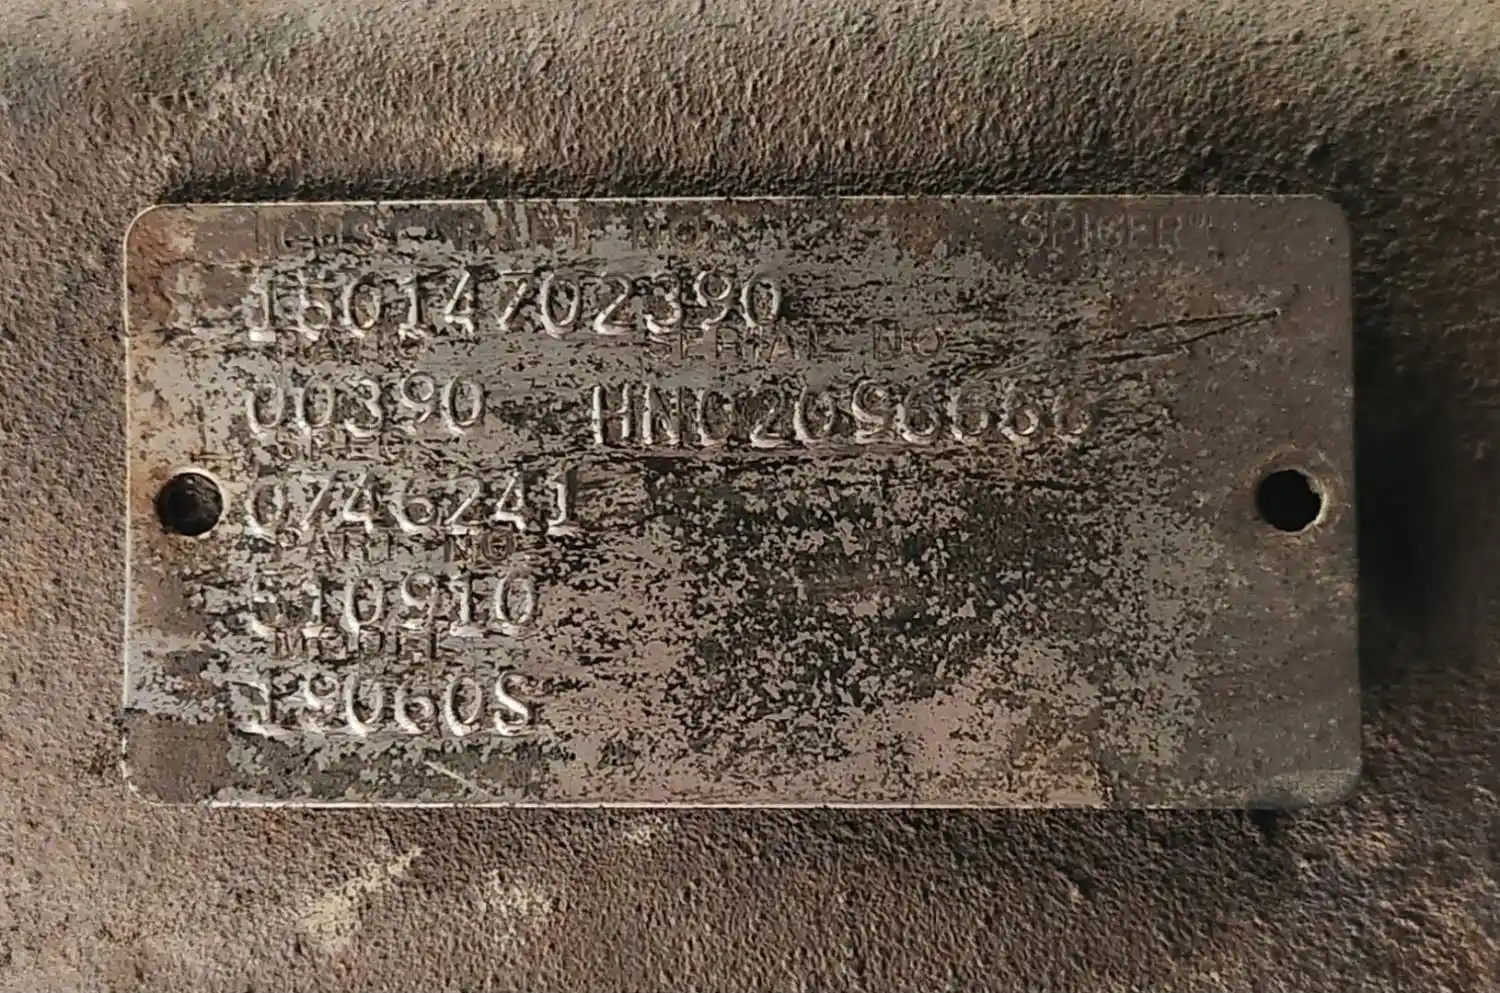 SPICER®
15014702390
RATIO SERIAL NO
00390 HN02096666
SPEC
0746241
PART NO.
510910
MODEL
19060S